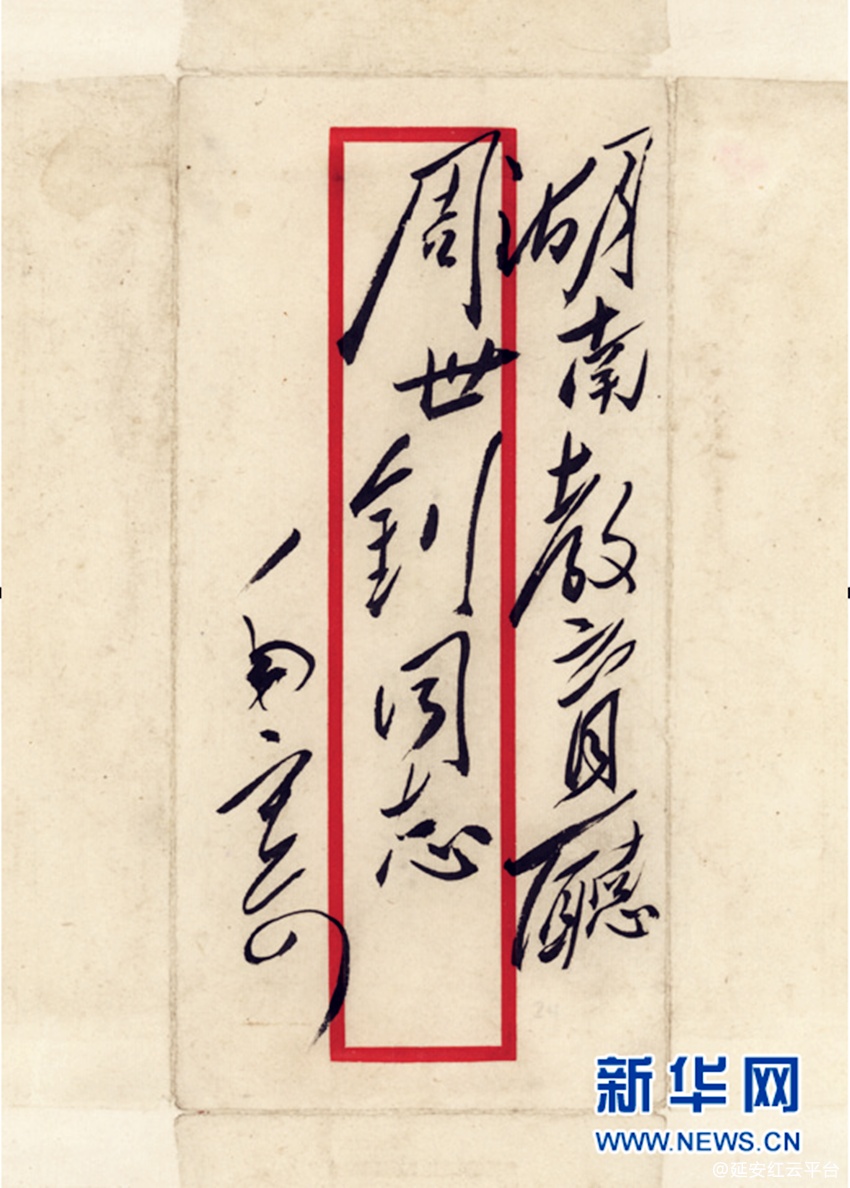 湖南教育廳
周世釗同志
自寄
新华网
WWW.NEWS.CN
@延安红云平台